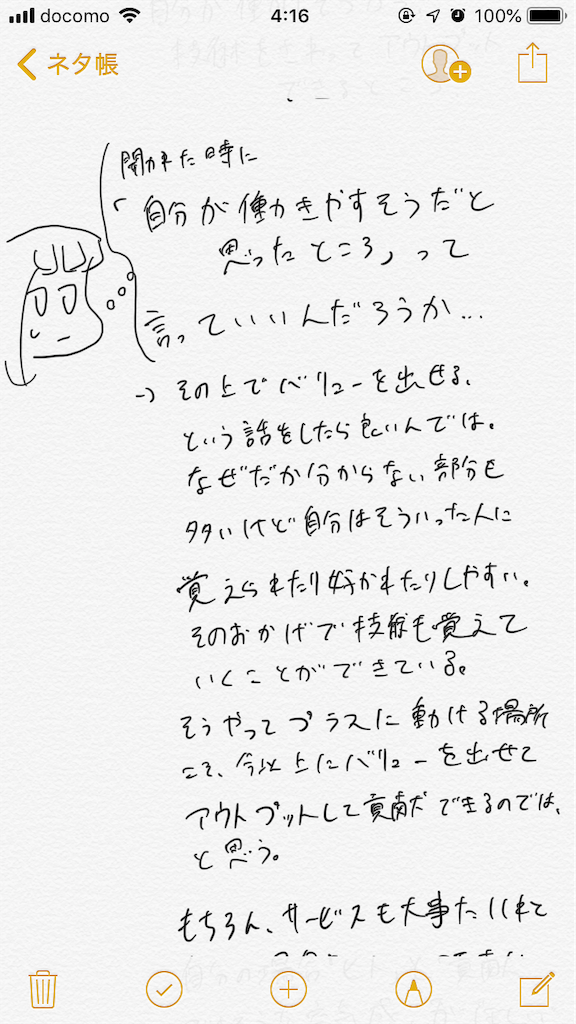 docomo 4:16 100%
ネタ帳
技術を アウトプット
できるところ
聞かれた時に
「自分が働きやすそうだと
思ったところ」って
言っていいんだろうか…
→ その上でバリューを出せる、
という話をしたら良いんでは。
なぜだか分からない部分も
多いけど自分はそういった人に
覚えられたり好かれたりしやすい。
そのおかげで技術も覚えて
いくことができている。
そうやってプラスに動ける場所
こそ、今以上にバリューを出せて
アウトプットして貢献できるのでは、
と思う。
もちろん、サービスも大事だけれど